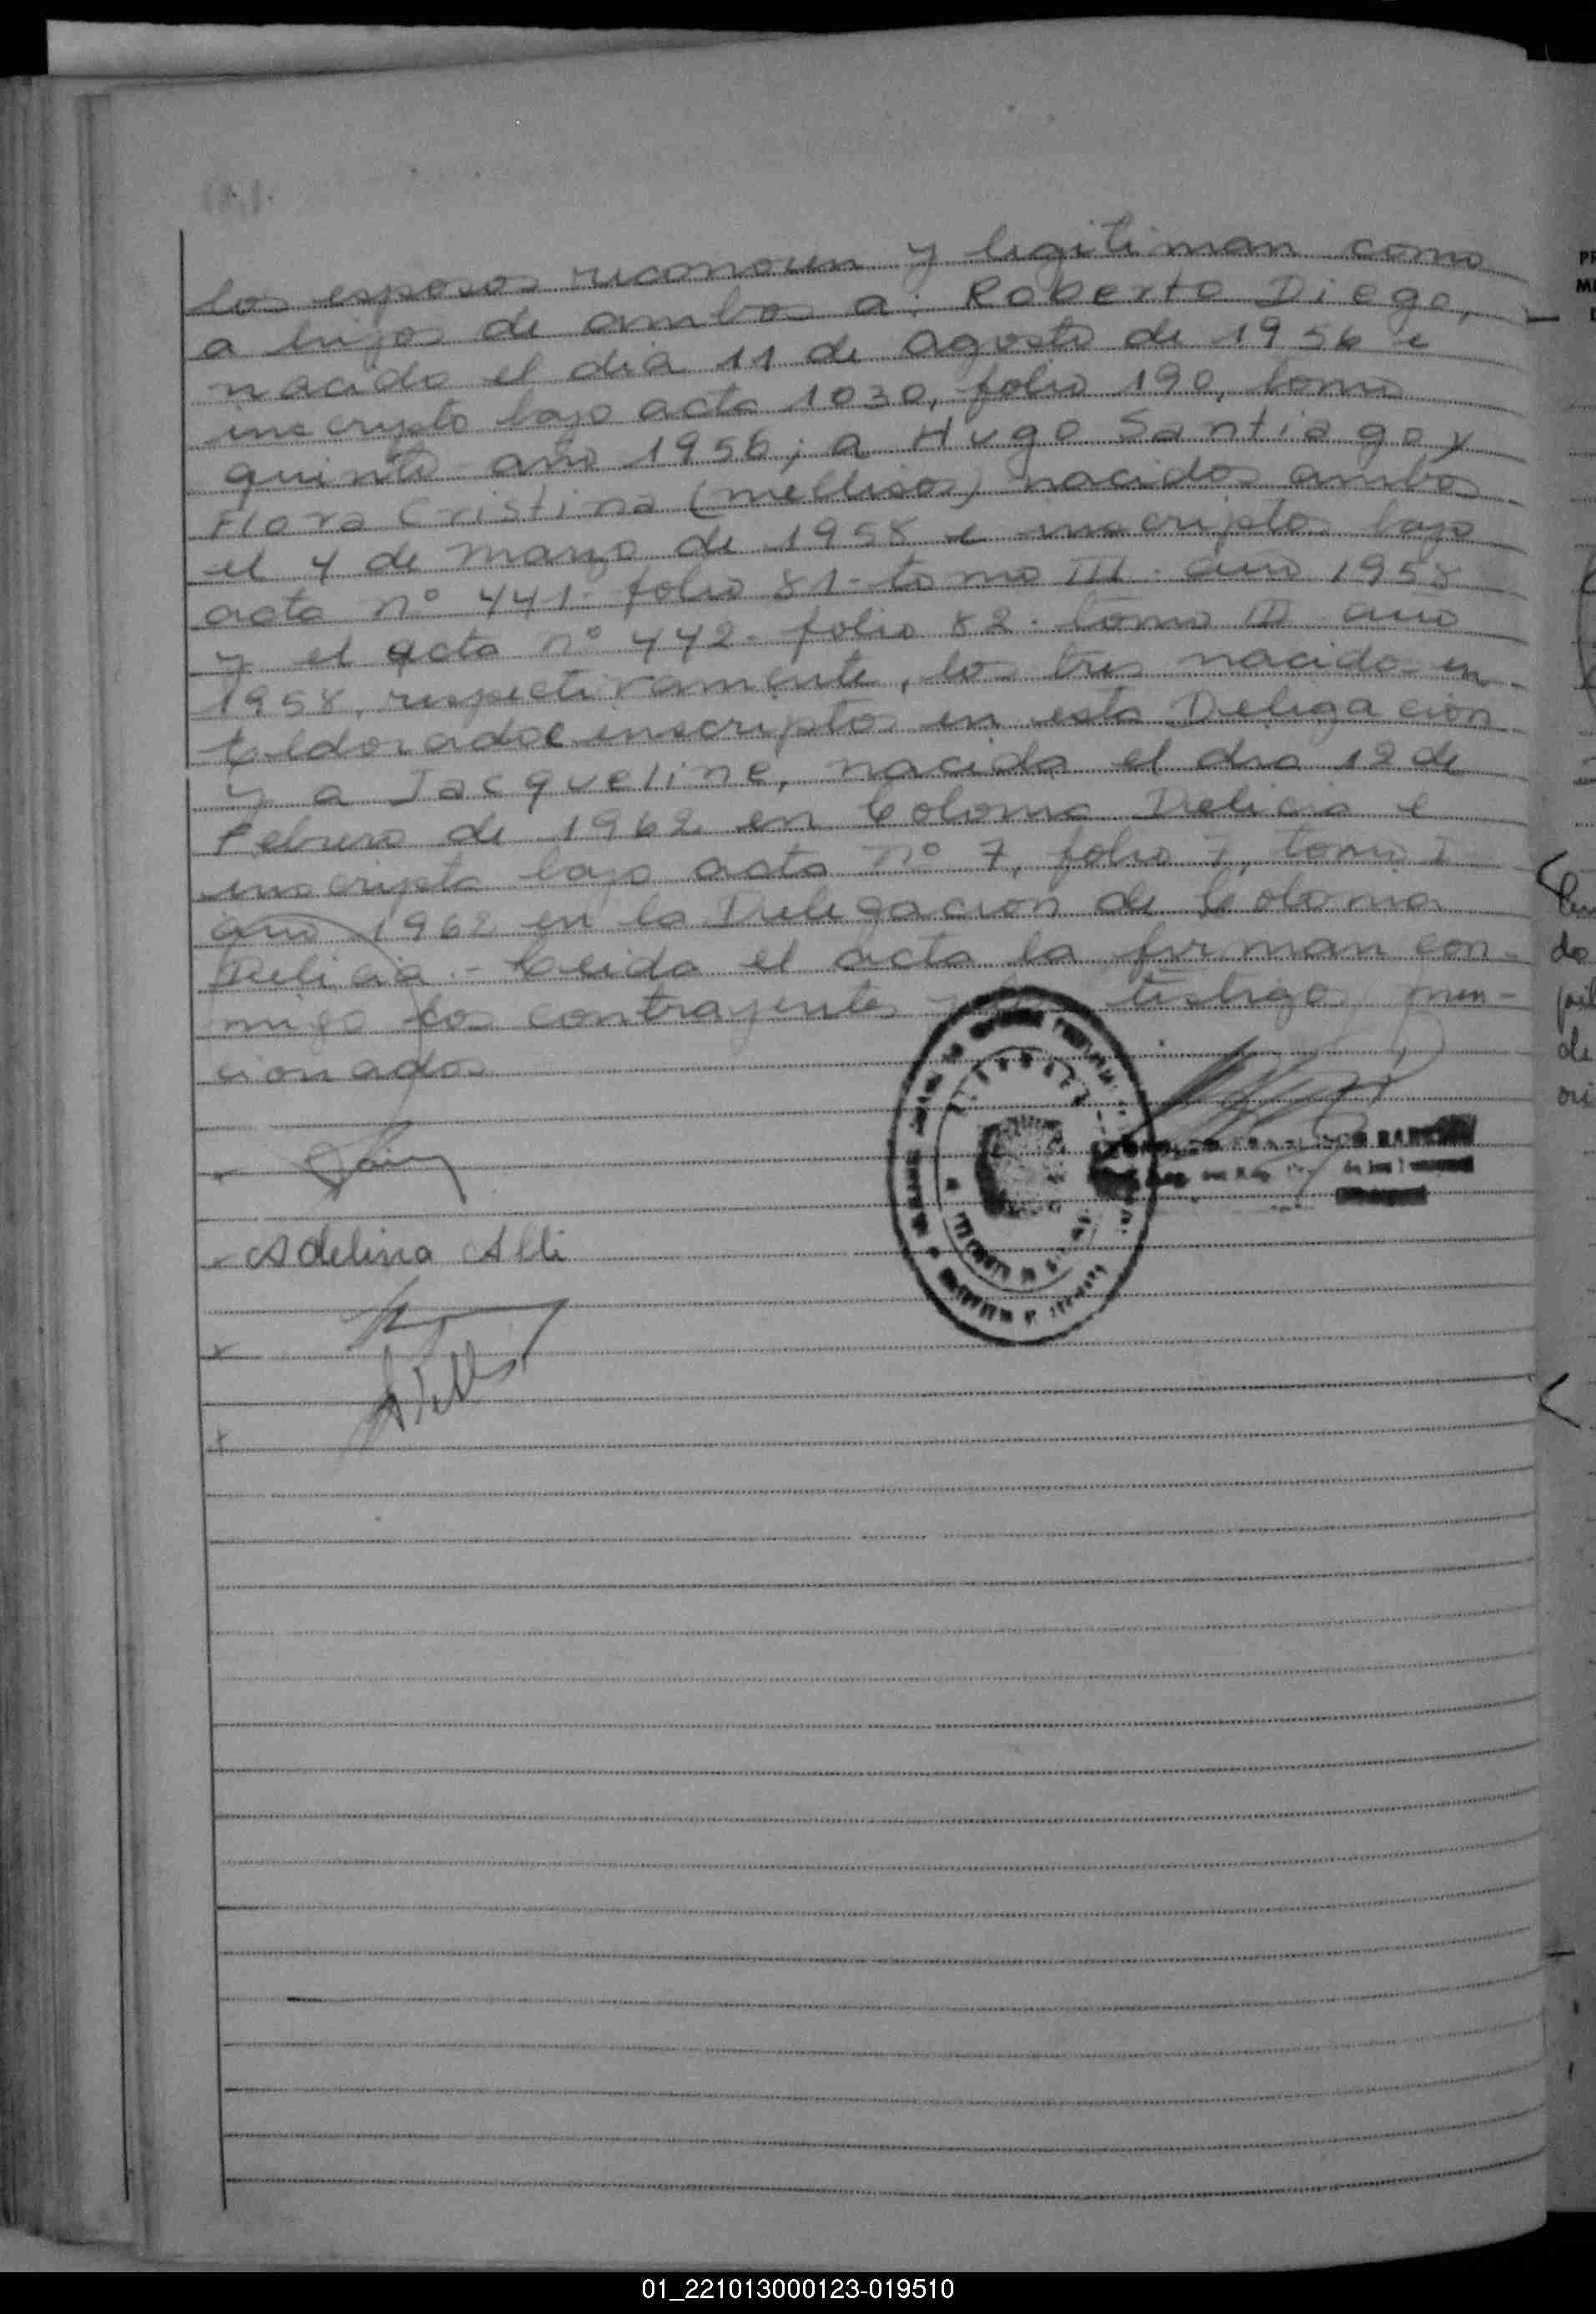 los esposos reconocen y legitiman como
a hijos de ambos a: Roberto Diego,
nacido el dia 11 de agosto de 1956 e
inscripto bajo acta 1030, folio 190, tomo
quinto año 1956; a Hugo Santiago y
Flora Cristina (mellisos) nacidos ambos
el 4 de marzo de 1958 e inscriptos bajo
acta nº 441- folio 81- tomo III. año 1958
y el acta nº 442- folio 82- tomo III año
1958, respectivamente, los tres nacidos en
Eldorado e inscriptos en esta Delegación
y a Jacqueline, nacida el dia 12 de
Febrero de 1962 en Colonia Delicia e
inscripta bajo acta nº 7, folio 7, tomo I
año 1962 en la Delegación de Colonia
Delicia.- Leida el acta la firman con-
migo los contrayentes y los testigos men-
cionados
Adelina Alli
01_221013000123-019510